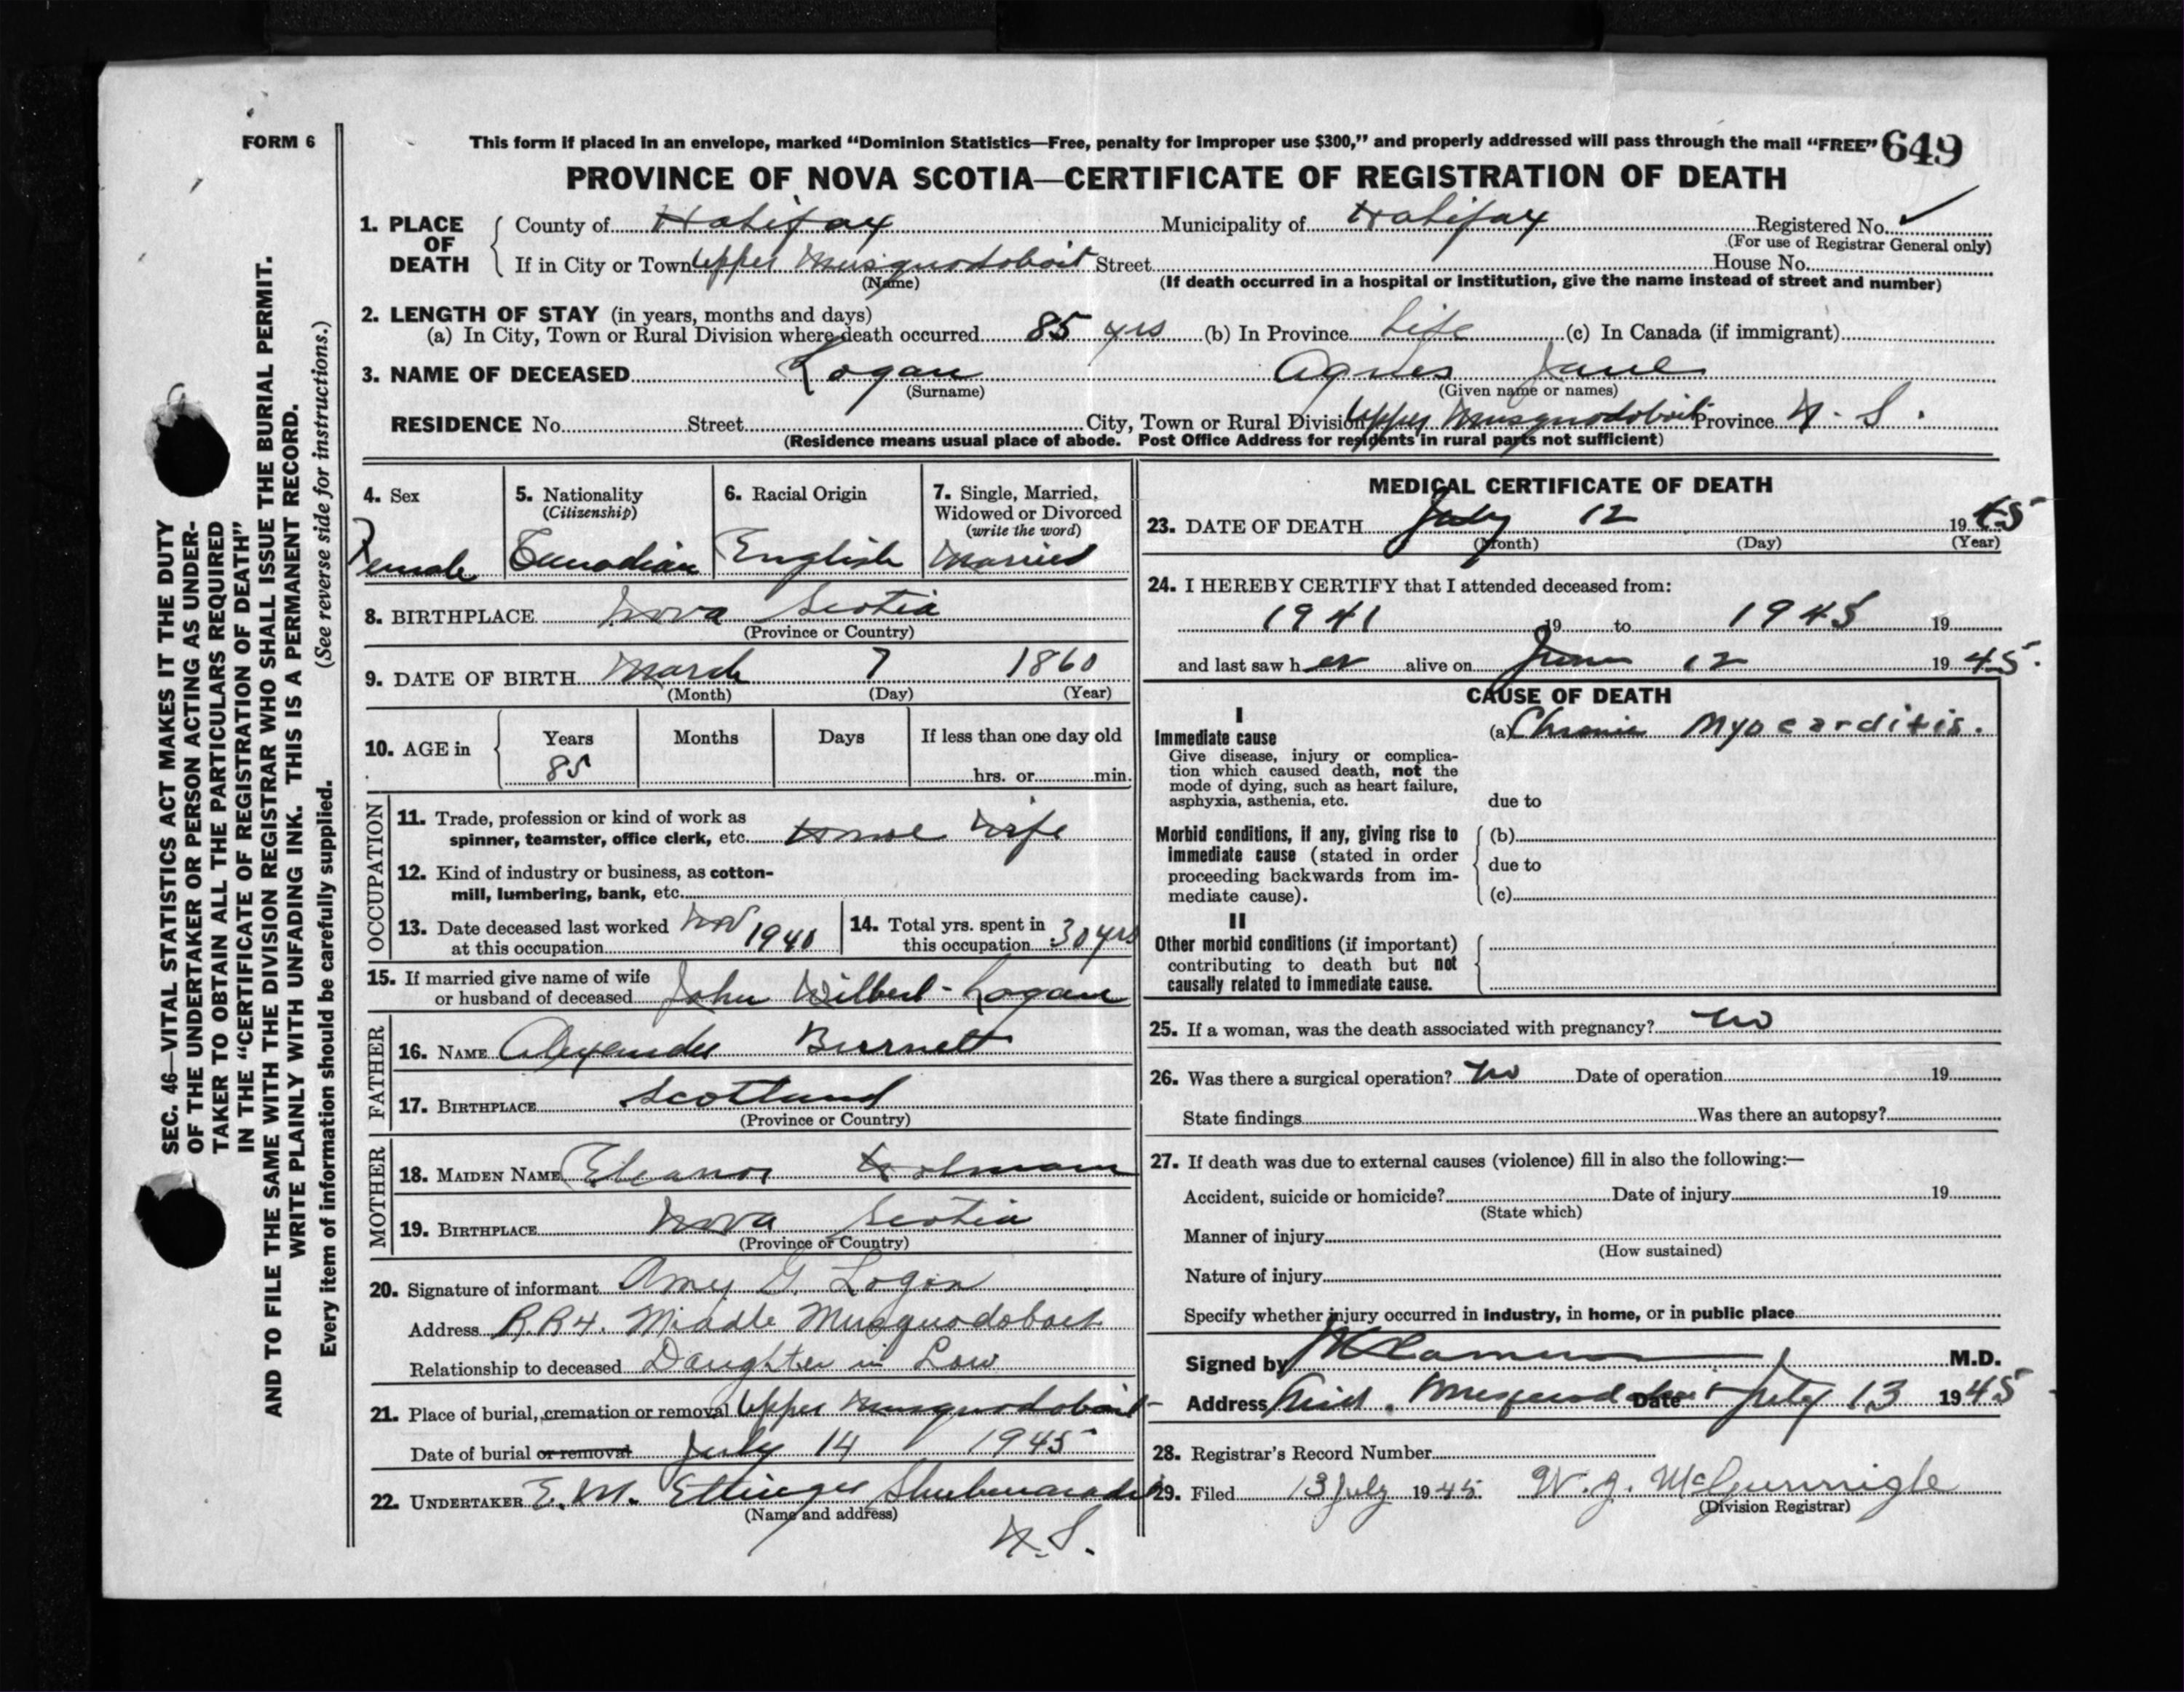 FORM 6
This form if placed in an envelope, marked “Dominion Statistics—Free, penalty for improper use $300,” and properly addressed will pass through the mail “FREE” 649
PROVINCE OF NOVA SCOTIA—CERTIFICATE OF REGISTRATION OF DEATH
1. PLACE OF DEATH
County of Halifax Municipality of Halifax Registered No. ✓
(For use of Registrar General only)
If in City or Town Upper Musquodoboit Street House No.
(Name) (If death occurred in a hospital or institution, give the name instead of street and number)
2. LENGTH OF STAY (in years, months and days)
(a) In City, Town or Rural Division where death occurred 85 yrs (b) In Province Life (c) In Canada (if immigrant)
3. NAME OF DECEASED Logan Agnes Jane
(Surname) (Given name or names)
RESIDENCE No. Street City, Town or Rural Division Upper Musquodoboit Province N. S.
(Residence means usual place of abode. Post Office Address for residents in rural parts not sufficient)
4. Sex
Female
5. Nationality
(Citizenship)
Canadian
6. Racial Origin
English
7. Single, Married,
Widowed or Divorced
(write the word)
Married
8. BIRTHPLACE Nova Scotia
(Province or Country)
9. DATE OF BIRTH March 7 1860
(Month) (Day) (Year)
10. AGE in Years Months Days If less than one day old
85 hrs. or min.
OCCUPATION
11. Trade, profession or kind of work as
spinner, teamster, office clerk, etc. House Wife
12. Kind of industry or business, as cotton-
mill, lumbering, bank, etc.
13. Date deceased last worked
at this occupation Nov 1940
14. Total yrs. spent in
this occupation 30 yrs
15. If married give name of wife
or husband of deceased John Wilbert Logan
FATHER
16. NAME Alexander Burnett
17. BIRTHPLACE Scotland
(Province or Country)
MOTHER
18. MAIDEN NAME Eleanor Holmam
19. BIRTHPLACE Nova Scotia
(Province or Country)
20. Signature of informant Amey G. Logan
Address R.R 4. Middle Musquodoboit
Relationship to deceased Daughter in Law
21. Place of burial, cremation or removal Upper Musquodoboit
Date of burial or removal July 14 1945
22. UNDERTAKER E. M. Ettinger Shubenacadie
(Name and address)
N.S.
MEDICAL CERTIFICATE OF DEATH
23. DATE OF DEATH July 12 1945
(Month) (Day) (Year)
24. I HEREBY CERTIFY that I attended deceased from:
1941 19 to 1945 19
and last saw her alive on June 12 1945.
CAUSE OF DEATH
I
Immediate cause
Give disease, injury or complica-
tion which caused death, not the
mode of dying, such as heart failure,
asphyxia, asthenia, etc.
(a) Chronic Myocarditis.
due to
Morbid conditions, if any, giving rise to
immediate cause (stated in order
proceeding backwards from im-
mediate cause).
(b)
due to
(c)
II
Other morbid conditions (if important)
contributing to death but not
causally related to immediate cause.
25. If a woman, was the death associated with pregnancy? No
26. Was there a surgical operation? No Date of operation 19
State findings Was there an autopsy?
27. If death was due to external causes (violence) fill in also the following:—
Accident, suicide or homicide? Date of injury 19
(State which)
Manner of injury
(How sustained)
Nature of injury
Specify whether injury occurred in industry, in home, or in public place
Signed by M.D.
Address Mid. Musquodoboit Date July 13 1945
28. Registrar's Record Number
29. Filed 13 July 1945. W. J. McGunnigle
(Division Registrar)
SEC. 46—VITAL STATISTICS ACT MAKES IT THE DUTY
OF THE UNDERTAKER OR PERSON ACTING AS UNDER-
TAKER TO OBTAIN ALL THE PARTICULARS REQUIRED
IN THE “CERTIFICATE OF REGISTRATION OF DEATH”
AND TO FILE THE SAME WITH THE DIVISION REGISTRAR WHO SHALL ISSUE THE BURIAL PERMIT.
WRITE PLAINLY WITH UNFADING INK. THIS IS A PERMANENT RECORD.
Every item of information should be carefully supplied. (See reverse side for instructions.)